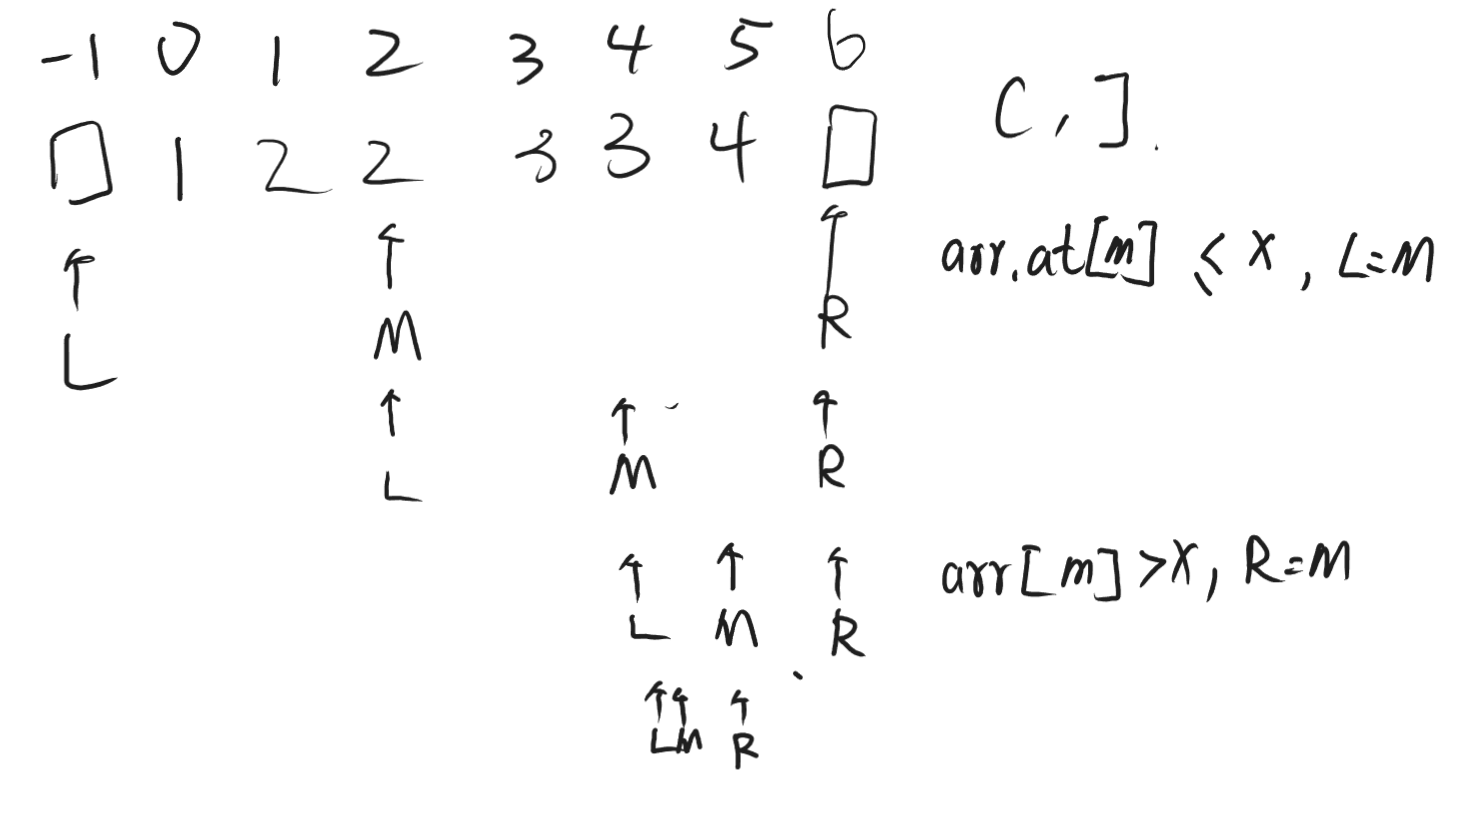 -1 0 1 2 3 4 5 6
1 2 2 3 3 4
( , ] .
arr.at[m] ≤ x , L=M
L M R
L M R
arr[m] > x , R=M
L M R
L M R